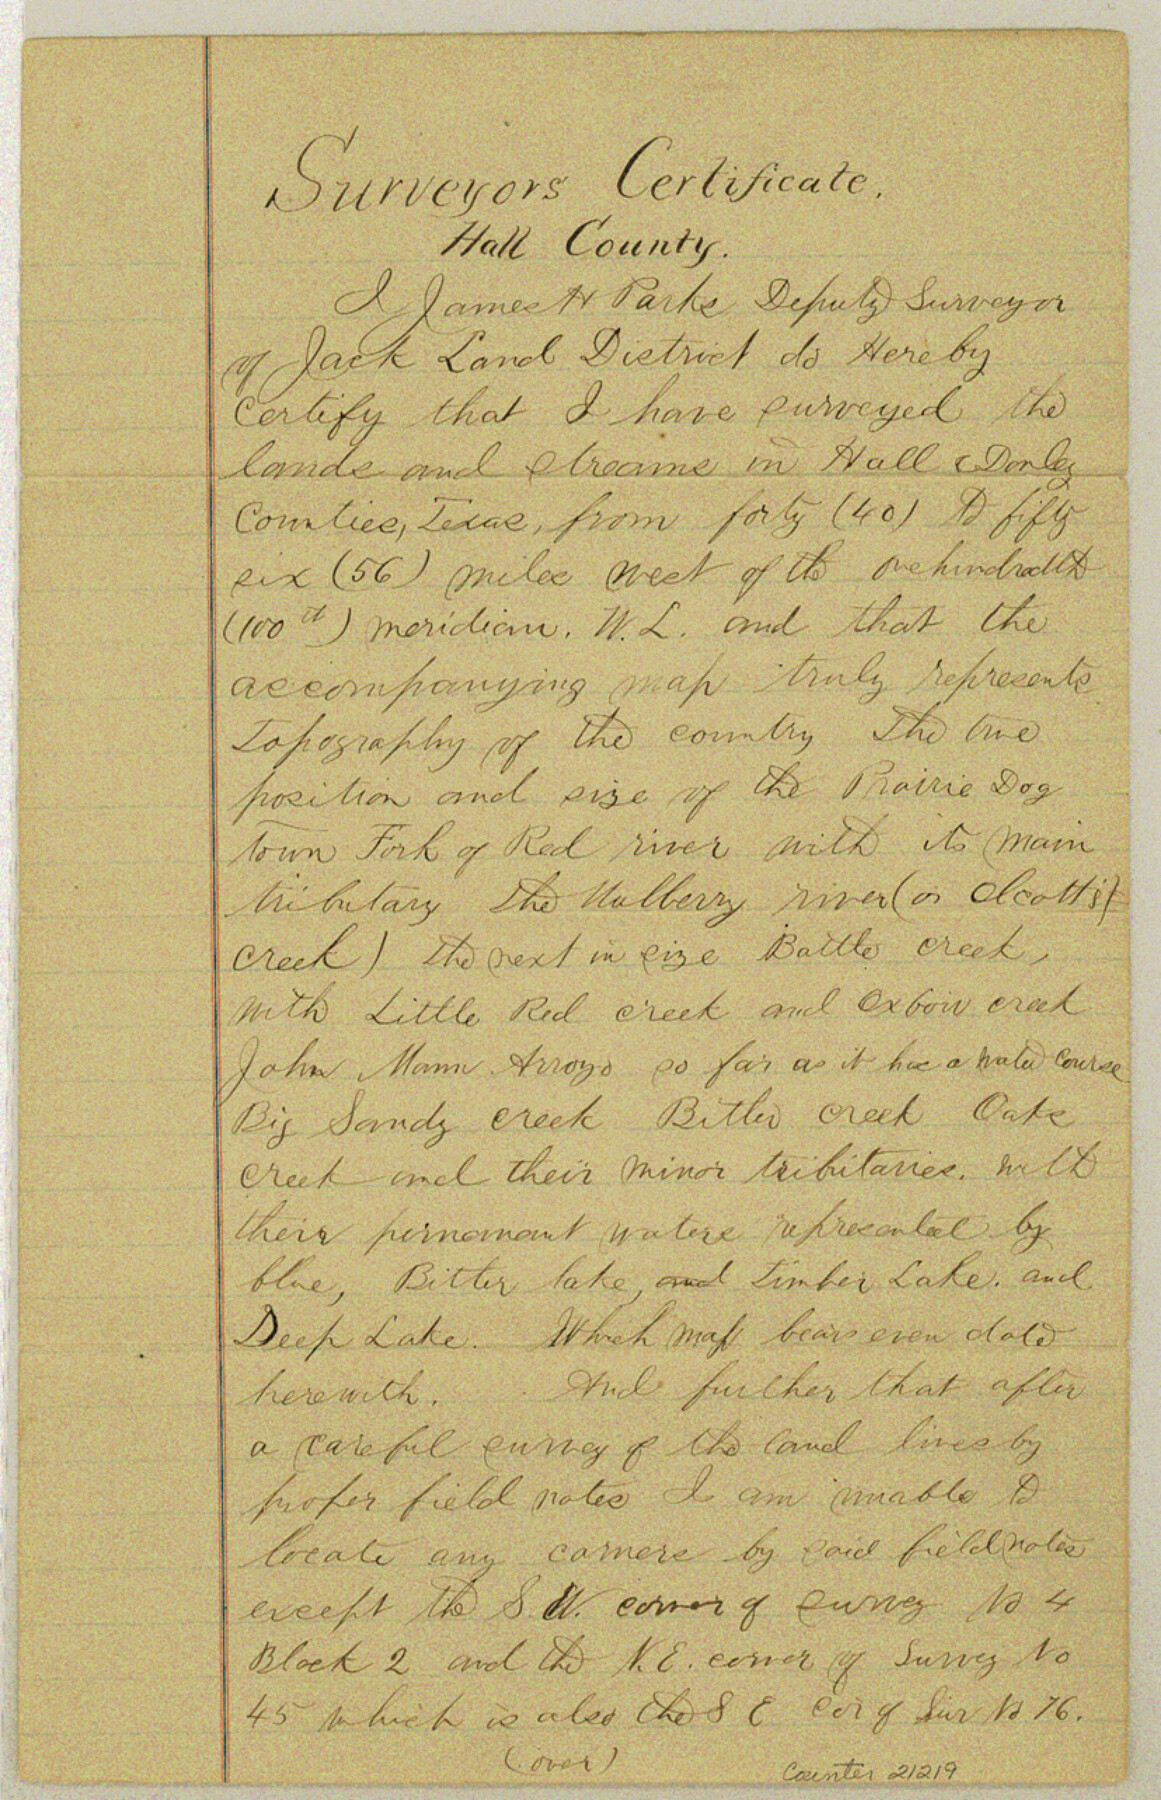 Surveyors Certificate.
Hall County.
I James H Parks Deputy Surveyor
of Jack Land District do Hereby
certify that I have surveyed the
lands and streams in Hall & Donley
Counties, Texas, from forty (40) to fifty
six (56) miles west of the onehundredth
(100th) meridian. W. L. and that the
accompanying map truly represents
Topography of the country The true
position and size of the Prairie Dog
town Fork of Red river with its main
tributary The Mulberry river (or
creek) the next in size Battle creek,
with Little Red creek and Oxbow creek
John Mann Arroyo so far as it has a water course
Big Sandy creek Bitter creek Oaks
creek and their minor tributaries. with
their permanant waters represented by
blue, Bitter lake, and Timber Lake. and
Deep Lake. Which map bears even date
herewith. And further that after
a careful survey of the land lines by
proper field notes I am unable to
locate any corners by said field notes
except the S. W. corner of survey No 4
Block 2 and the N. E. corner of Survey No
45 which is also the S E cor of Sur No 76.
(over)
Counter 21219